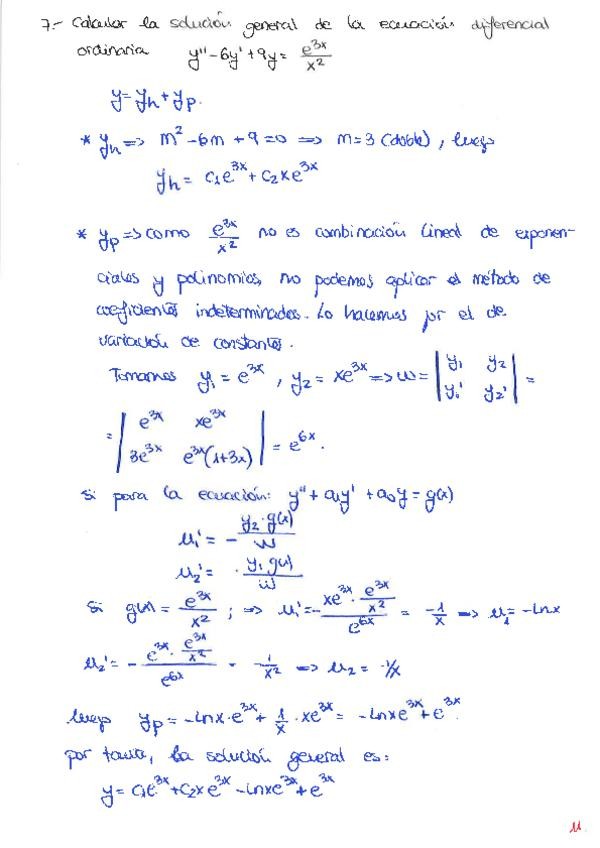 7.- Calcular la solución general de la ecuación diferencial
ordinaria y'' - 6y' + 9y = e^{3x}/x^2
y = y_h + y_p.
* y_h => m^2 - 6m + 9 = 0 => m = 3 (doble), luego
y_h = c_1e^{3x} + c_2xe^{3x}
* y_p => como e^{3x}/x^2 no es combinación lineal de exponen-
ciales y polinomios, no podemos aplicar el método de
coeficientes indeterminados. Lo hacemos por el de
variación de constantes.
Tomamos y_1 = e^{3x}, y_2 = xe^{3x} => w = |y_1 y_2; y_1' y_2'| =
= |e^{3x} xe^{3x}; 3e^{3x} e^{3x}(1+3x)| = e^{6x}.
si para la ecuación: y'' + a_1y' + a_0y = g(x)
u_1' = - y_2·g(x)/w
u_2' = · y_1 g(x)/w
si g(x) = e^{3x}/x^2 ; => u_1' = - xe^{3x}·e^{3x}/x^2/e^{6x} = -1/x => u_1 = -lnx
u_2' = - e^{3x}·e^{3x}/x^2/e^{6x} - 1/x^2 => u_2 = -1/x
luego y_p = -lnx·e^{3x} + 1/x · xe^{3x} = -lnxe^{3x} + e^{3x}.
por tanto, la solución general es:
y = c_1e^{3x} + c_2xe^{3x} - lnxe^{3x} + e^{3x}